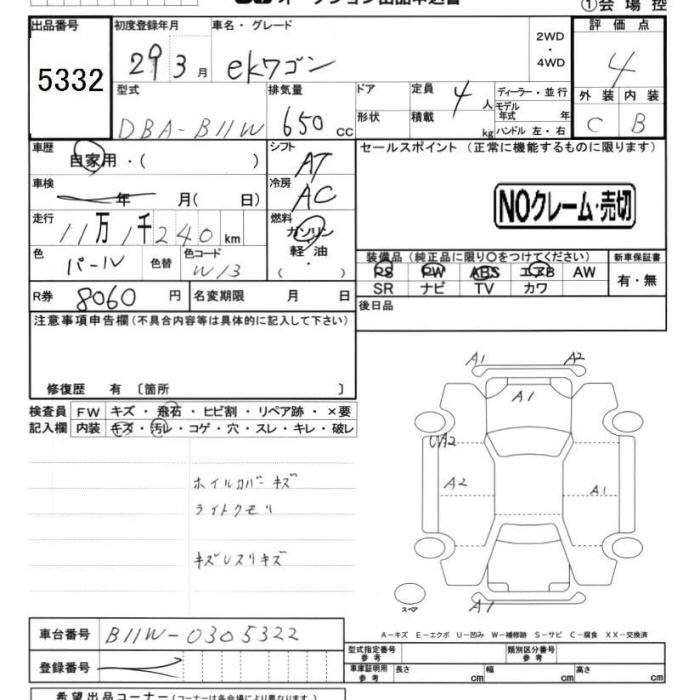 オークション出品申込書
①会場控
出品番号
5332
初度登録年月
29 3月
車名・グレード
ekワゴン
2WD
・
4WD
評価点
4
外装 内装
C B
型式
DBA-B11W
排気量
650cc
ドア
形状
定員
4人
積載
kg
ディーラー・並行
モデル
年式 年
ハンドル 左・右
車歴
自家用・( )
シフト
AT
セールスポイント (正常に機能するものに限ります)
車検
年 月( 日)
冷房
AC
NOクレーム・売切
走行
11万1千240km
燃料
ガソリン
軽油
・( )
色
パール
色替
色コード
W13
装備品 (純正品に限り〇をつけてください)
新車保証書
PS PW ABS エアB AW
SR ナビ TV カワ
有・無
R券
8060円
名変期限 月 日
後日品
注意事項申告欄 (不具合内容等は具体的に記入して下さい)
修復歴 有 〔箇所 〕
検査員
記入欄
FW キズ・飛石・ヒビ割・リペア跡・×要
内装 キズ・汚レ・コゲ・穴・スレ・キレ・破レ
ホイルカバーキズ
ライトクモリ
キズUスリキズ
A1 A2
A1
UA2
A2
A1
スペア
A1
A-キズ E-エクボ U-凹み W-補修跡 S-サビ C-腐食 XX-交換済
車台番号
B11W-0305322
登録番号
型式指定番号
参考
類別区分番号
参考
車庫証明用
参考
長さ cm
幅 cm
高さ cm
希望出品コーナー (コーナーは各会場により異なります)